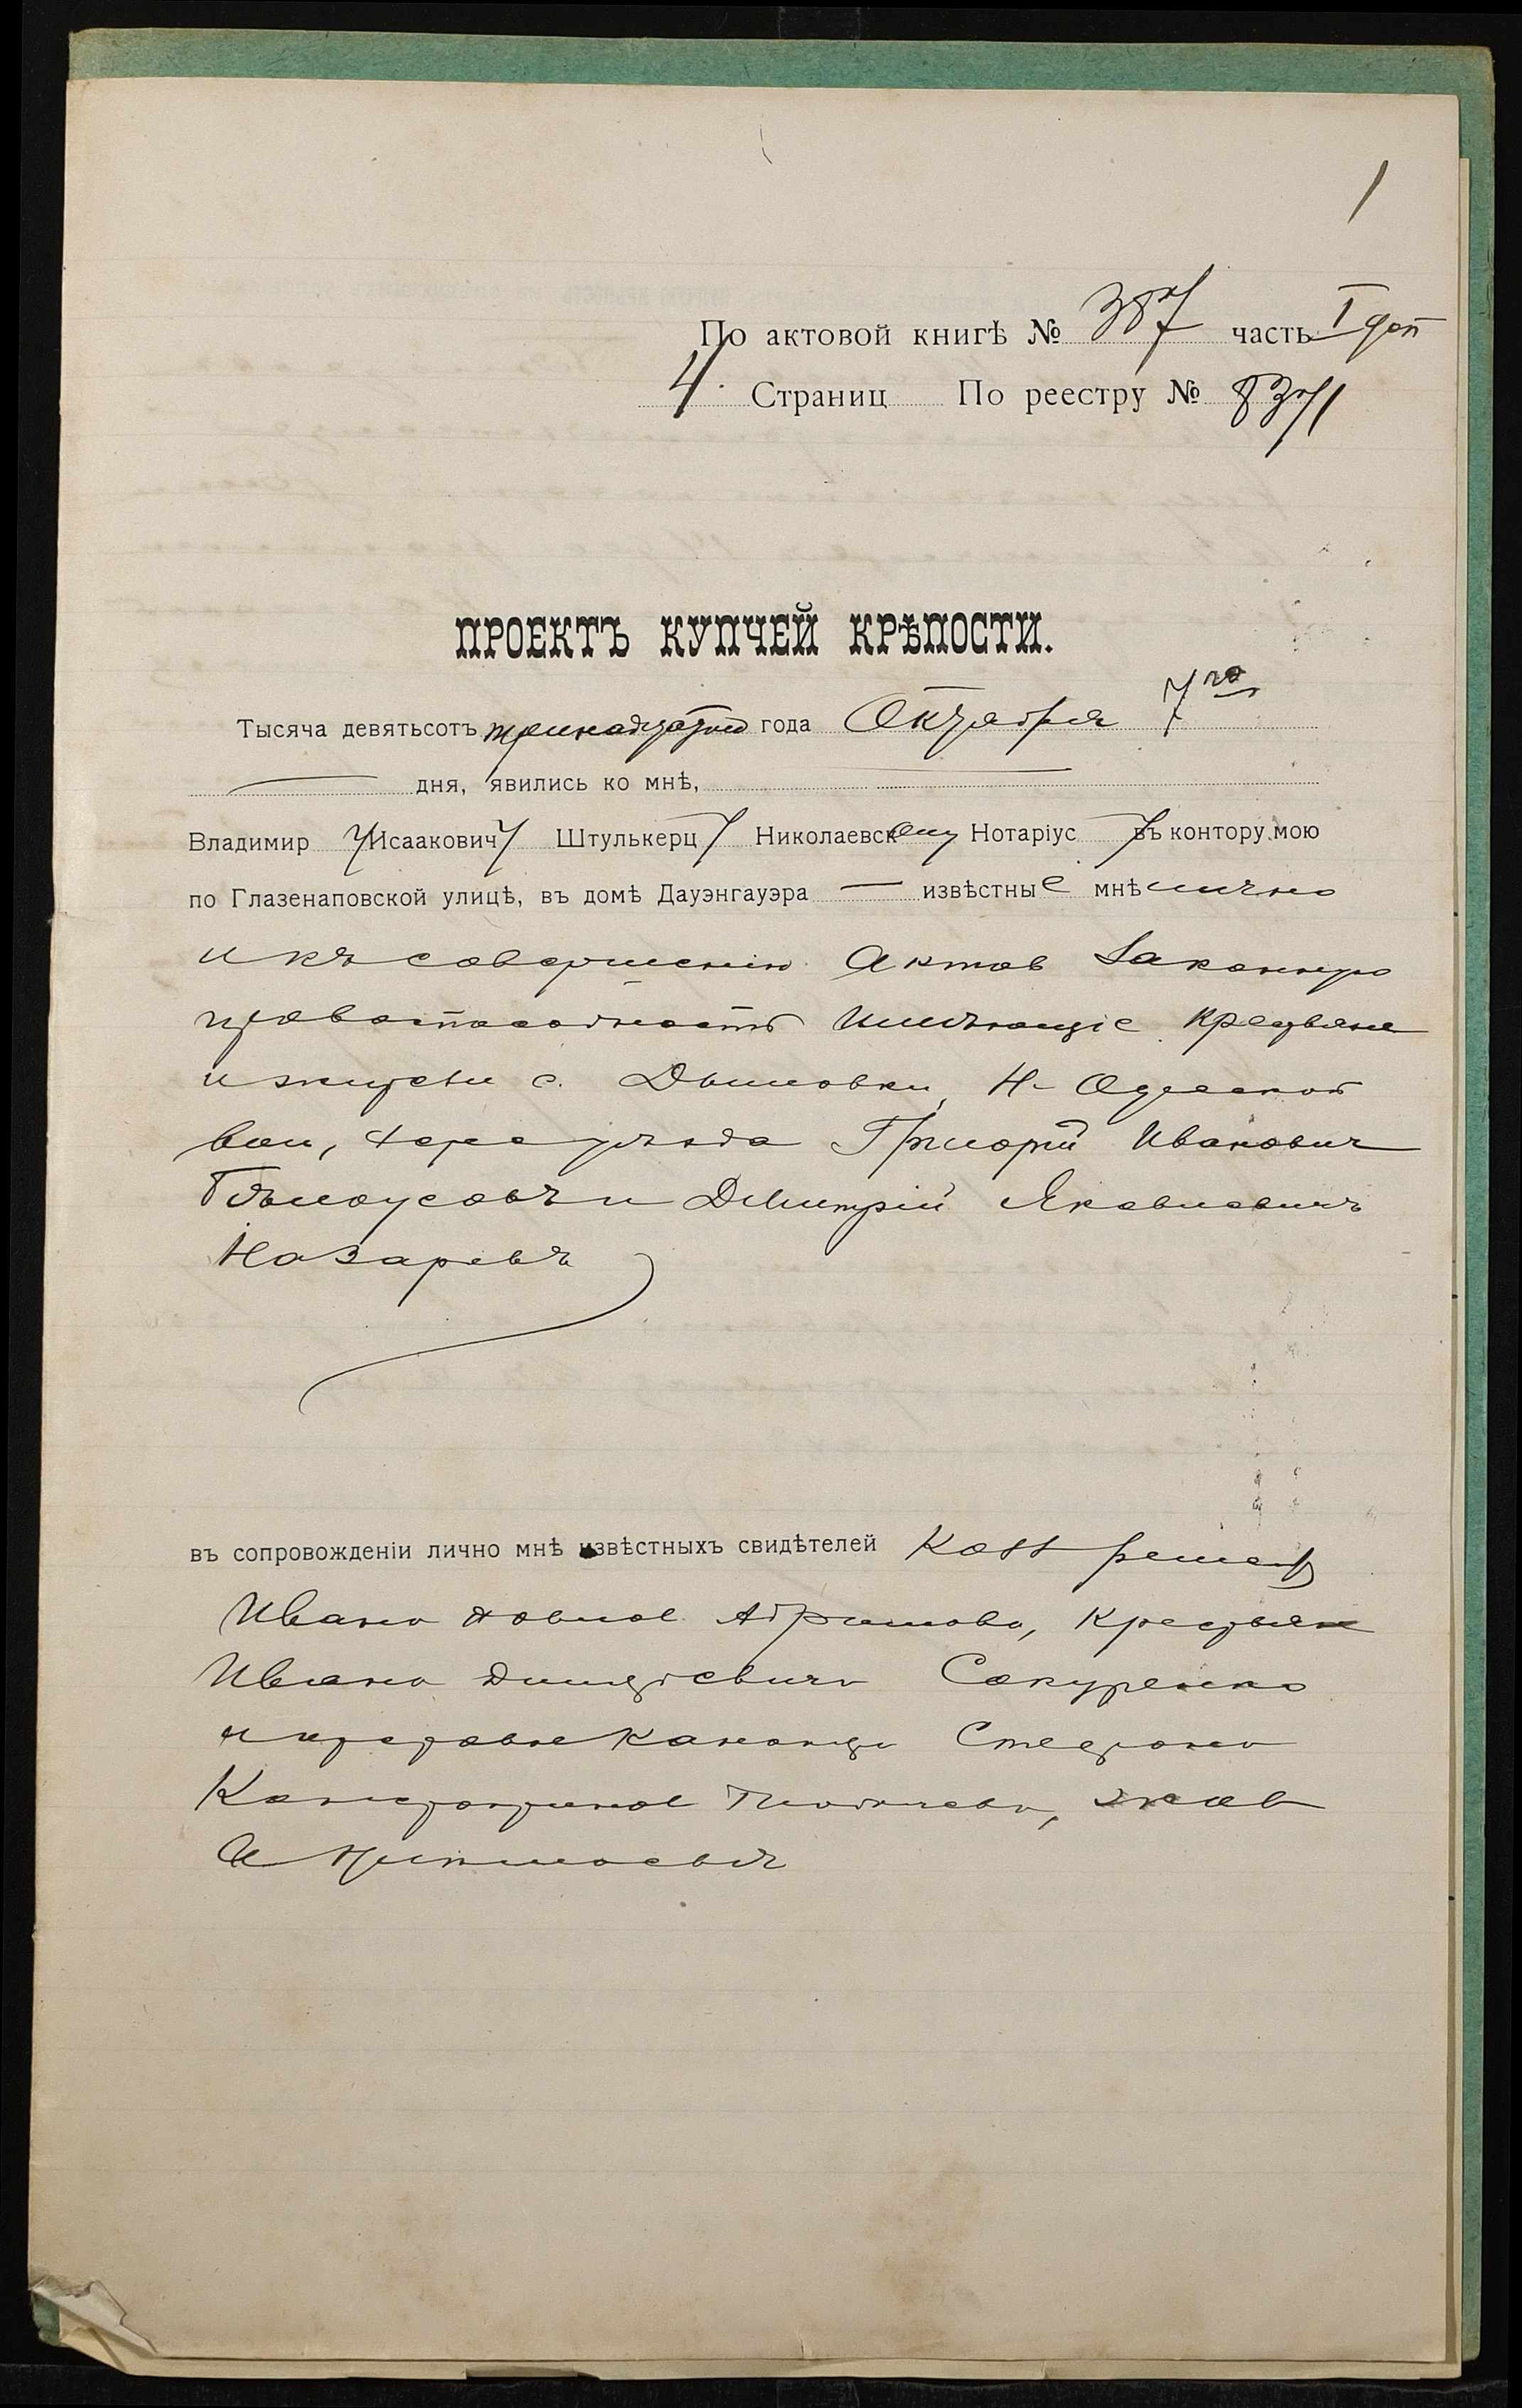 1
По актовой книгѣ № 387 часть I доп
4. Страниц По реестру № 8371
ПРОЕКТЪ КУПЧЕЙ КРѢПОСТИ.
Тысяча девятьсотъ тринадцатаго года Октября 7го
дня, явились ко мнѣ,
Владимир Исаакович Штулькерц Николаевскому Нотаріус въ контору мою
по Глазенаповской улицѣ, въ домѣ Дауэнгауэра — извѣстные мнѣ лично
и къ совершенію актов законную
правоспособность имѣющіе крестьяне
и жители с. Дымовки, Н-Одесской
вол, Херс уѣзда Григорій Иванович
Бѣлоусовъ и Димитрій Яковлевичъ
Назаревъ
въ сопровожденіи лично мнѣ извѣстныхъ свидѣтелей
Ивана Абрамова, крестьян
Ивана Сакуренко
и Степана